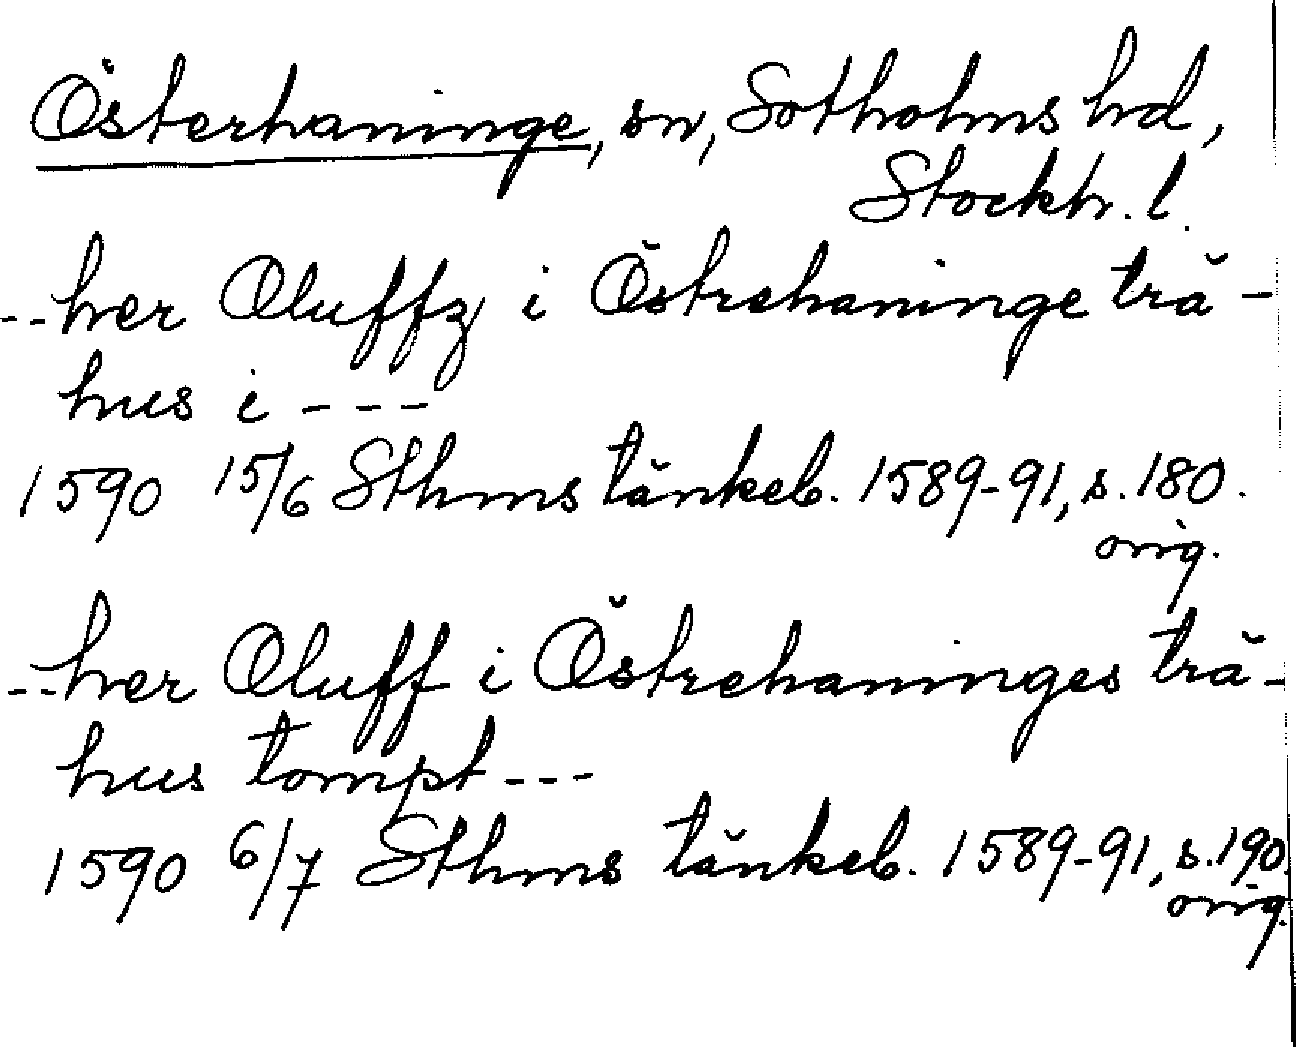 Österhaninge, sn, Sotholms hd,
Stockh. l.
--her Oluffz i Östrehaninge trä-
hus i ---
1590 15/6 Sthms tänkeb. 1589-91, s. 180.
orig.
--her Oluff i Östrehaninges trä-
hus tompt ---
1590 6/7 Sthms tänkeb. 1589-91, s. 190.
orig.